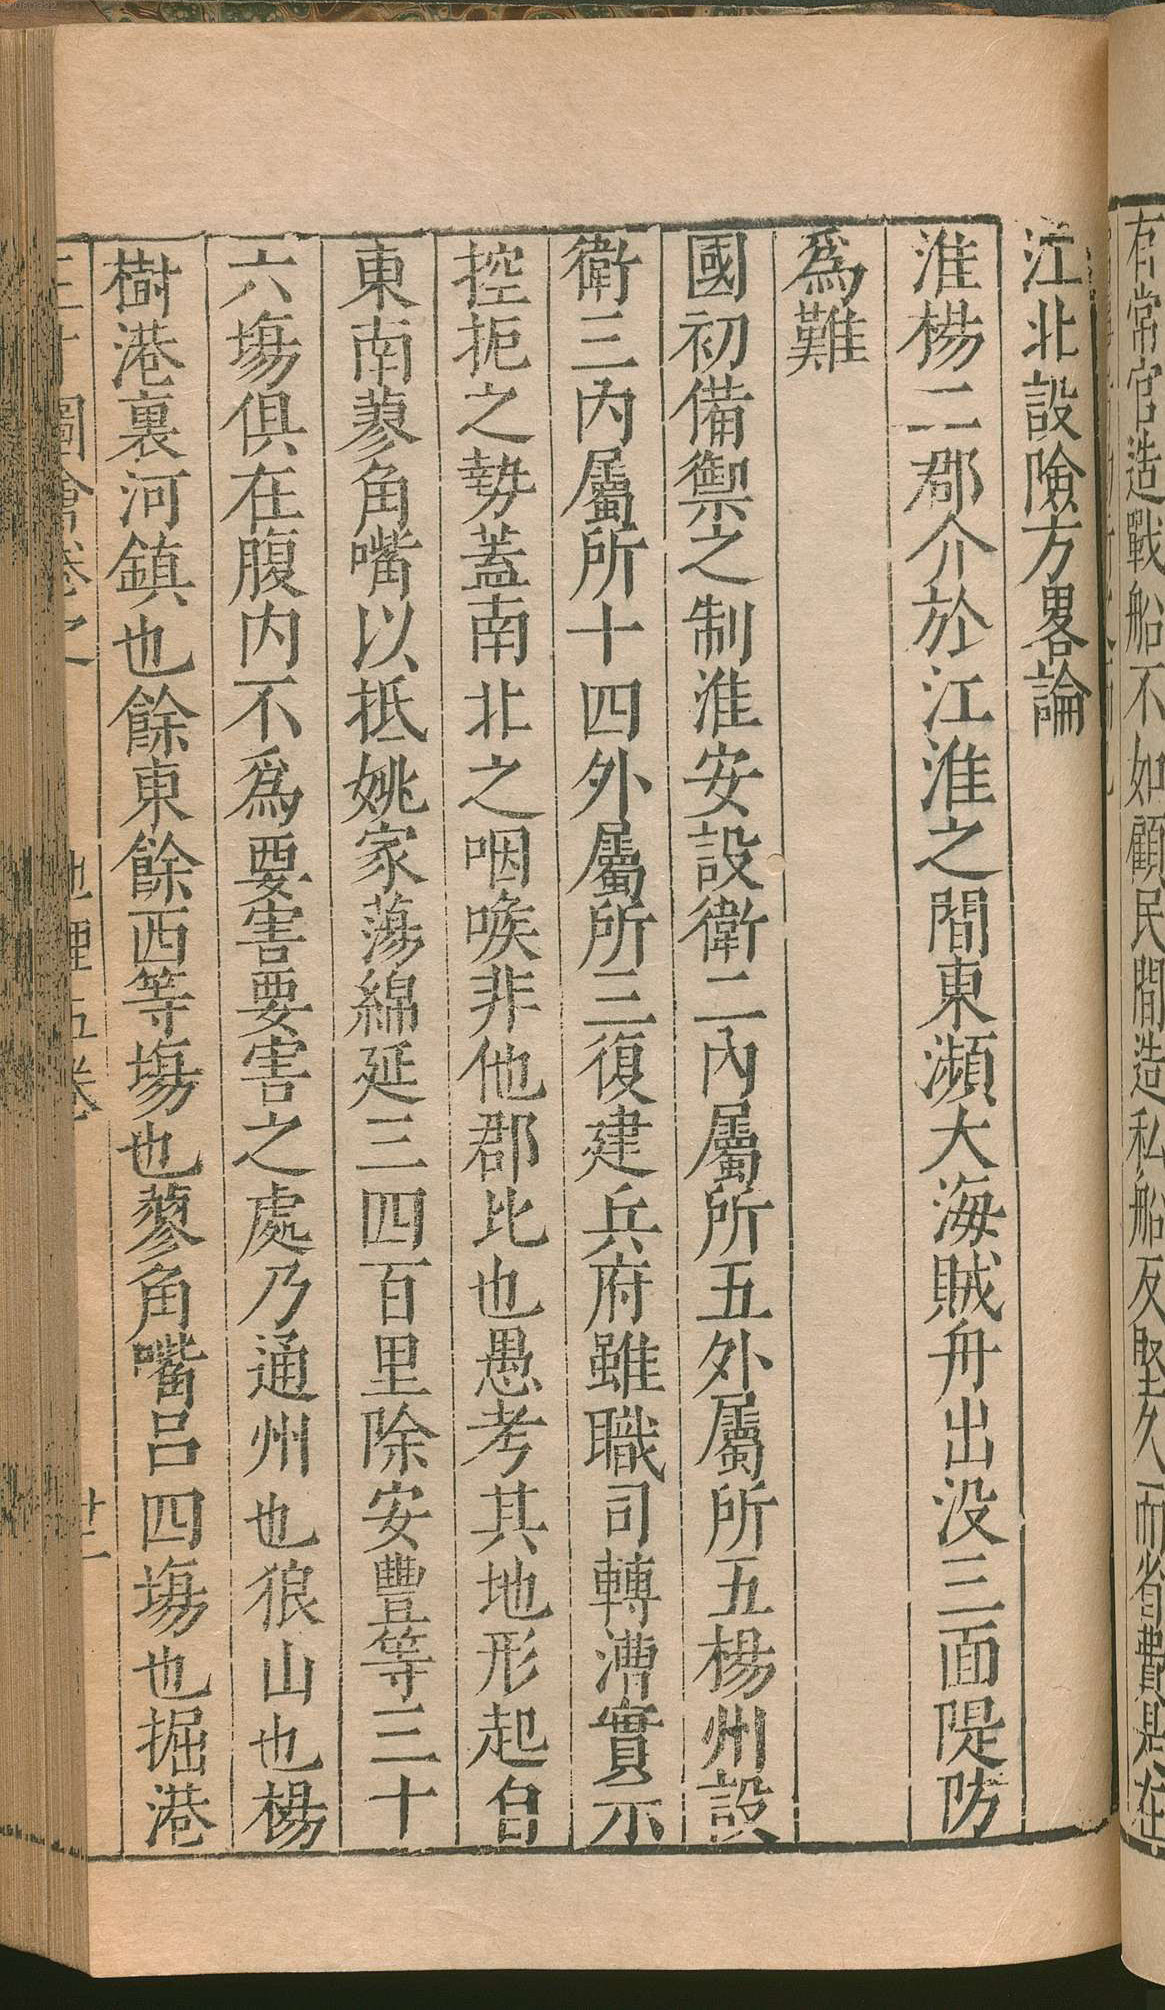 有常官造戰船不如顧民間造私船反堅久而省費是在
江北設險方畧論
淮楊二郡介於江淮之間東瀕大海賊舟出没三面隄防
爲難
國初備禦之制淮安設衛二內屬所五外屬所五楊州設
衛三內屬所十四外屬所三復建兵府雖職司轉漕實示
控扼之勢蓋南北之咽喉非他郡比也愚考其地形起自
東南蓼角嘴以抵姚家蕩綿延三四百里除安豐等三十
六塲俱在腹内不爲要害要害之處乃通州也狼山也楊
樹港裏河鎮也餘東餘西等塲也蓼角嘴吕四塲也掘港
三才圖會卷之 地理五卷 廿二